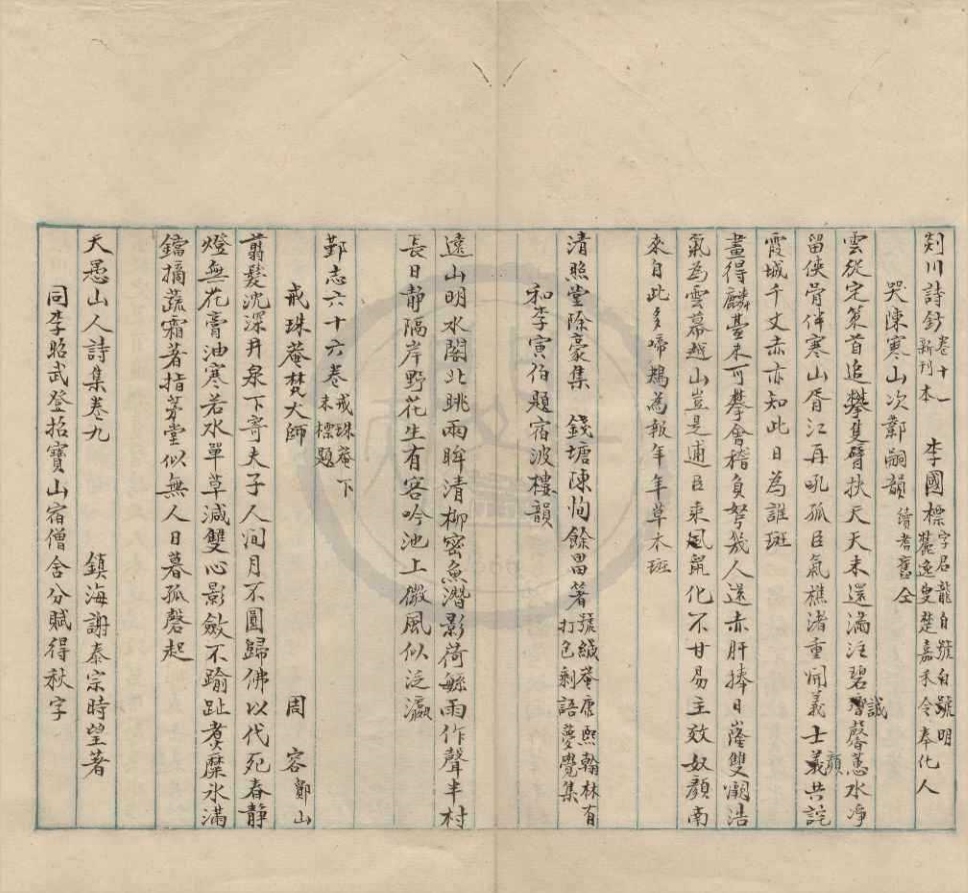 剡川詩鈔 卷十一 新刊本 李國標 字君龍自號白號明 麓逸叟楚嘉禾令奉化人
哭陳寒山次鄭嗣韻 續耆舊仝
雲從定策首追攀隻臂扶天天未還滿泣碧 誠馨蕙水淨
留俠骨伴寒山胥江再吼孤臣氣樵渚重開義士顏共詫
霞城千丈赤亦知此日為誰斑
畫得麟臺未可攀會稽負弩幾人還赤肝捧日巃雙闕浩
氣為雲幕越山豈是逋臣乘颿化不甘易主效奴顏南
來自此多啼鴂為報年年草木斑
清照堂除豪集 錢塘陳恂餘㽞著 號緘菴康熙翰林有 打包剩語夢覺集
和李寅伯題宿波樓韻
遠山明水閣北眺雨眸清柳密魚潛影荷緐雨作聲半村
長日靜隔岸野花生有客吟池上微風似泛瀛
鄞志六十六卷 戒珠菴下 未標題
戒珠菴梵大師 周容鄮山
翦髮沈深井泉下寄夫子人間月不圓歸佛以代死春靜
燈無花膏油寒若水單草減雙心影斂不踰趾煑糜氷滿
鐺摘蔬霜著指茅堂似無人日暮孤磬起
天愚山人詩集卷九 鎮海謝泰宗時望著
同李昭武登招寶山宿僧舍分賦得秋字